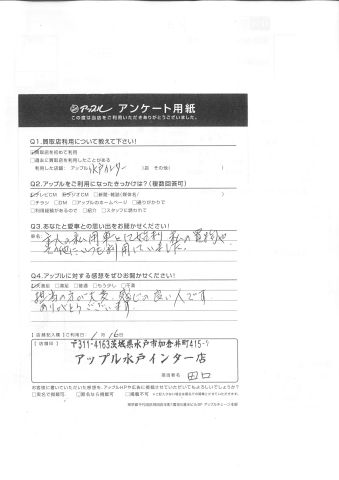 アップル アンケート用紙
この度は当店をご利用いただきありがとうございました。
Q1.買取店利用について教えて下さい!
☑買取店を初めて利用
□過去に買取店を利用したことがある
利用した店舗: アップル 水戸インター (店 その他) ( )
Q2.アップルをご利用になったきっかけは?(複数回答可)
☑テレビCM ☑ラジオCM □新聞・雑誌(媒体名/ )
□チラシ □DM □アップルのホームページ □通りがかりで
□利用経験があるので □紹介 □スタッフに誘われて
Q3.あなたと愛車との思い出をお聞かせください!
車名:
Q4.アップルに対する感想をぜひお聞かせください!
☑大満足 □満足 □普通 □もう少し □不満
担当の方が大変、感じの良い人です
ありがとうございます
【店舗記入欄】ご利用日: 1月16日
【店舗印】 〒311-4163茨城県水戸市加倉井町415-
アップル水戸インター店
担当者名 田口
お客様に書いていただいた感想を、アップルHPや広告に掲載させていただいてもよろしいでしょうか?
□実名で掲載可 □匿名なら掲載可 □掲載不可